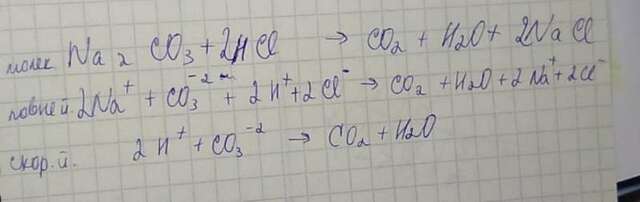 молек Na₂CO₃ + 2HCl → CO₂ + H₂O + 2NaCl
повний. 2Na⁺ + CO₃⁻² + 2H⁺ + 2Cl⁻ → CO₂ + H₂O + 2Na⁺ + 2Cl⁻
скор. й. 2H⁺ + CO₃⁻² → CO₂ + H₂O